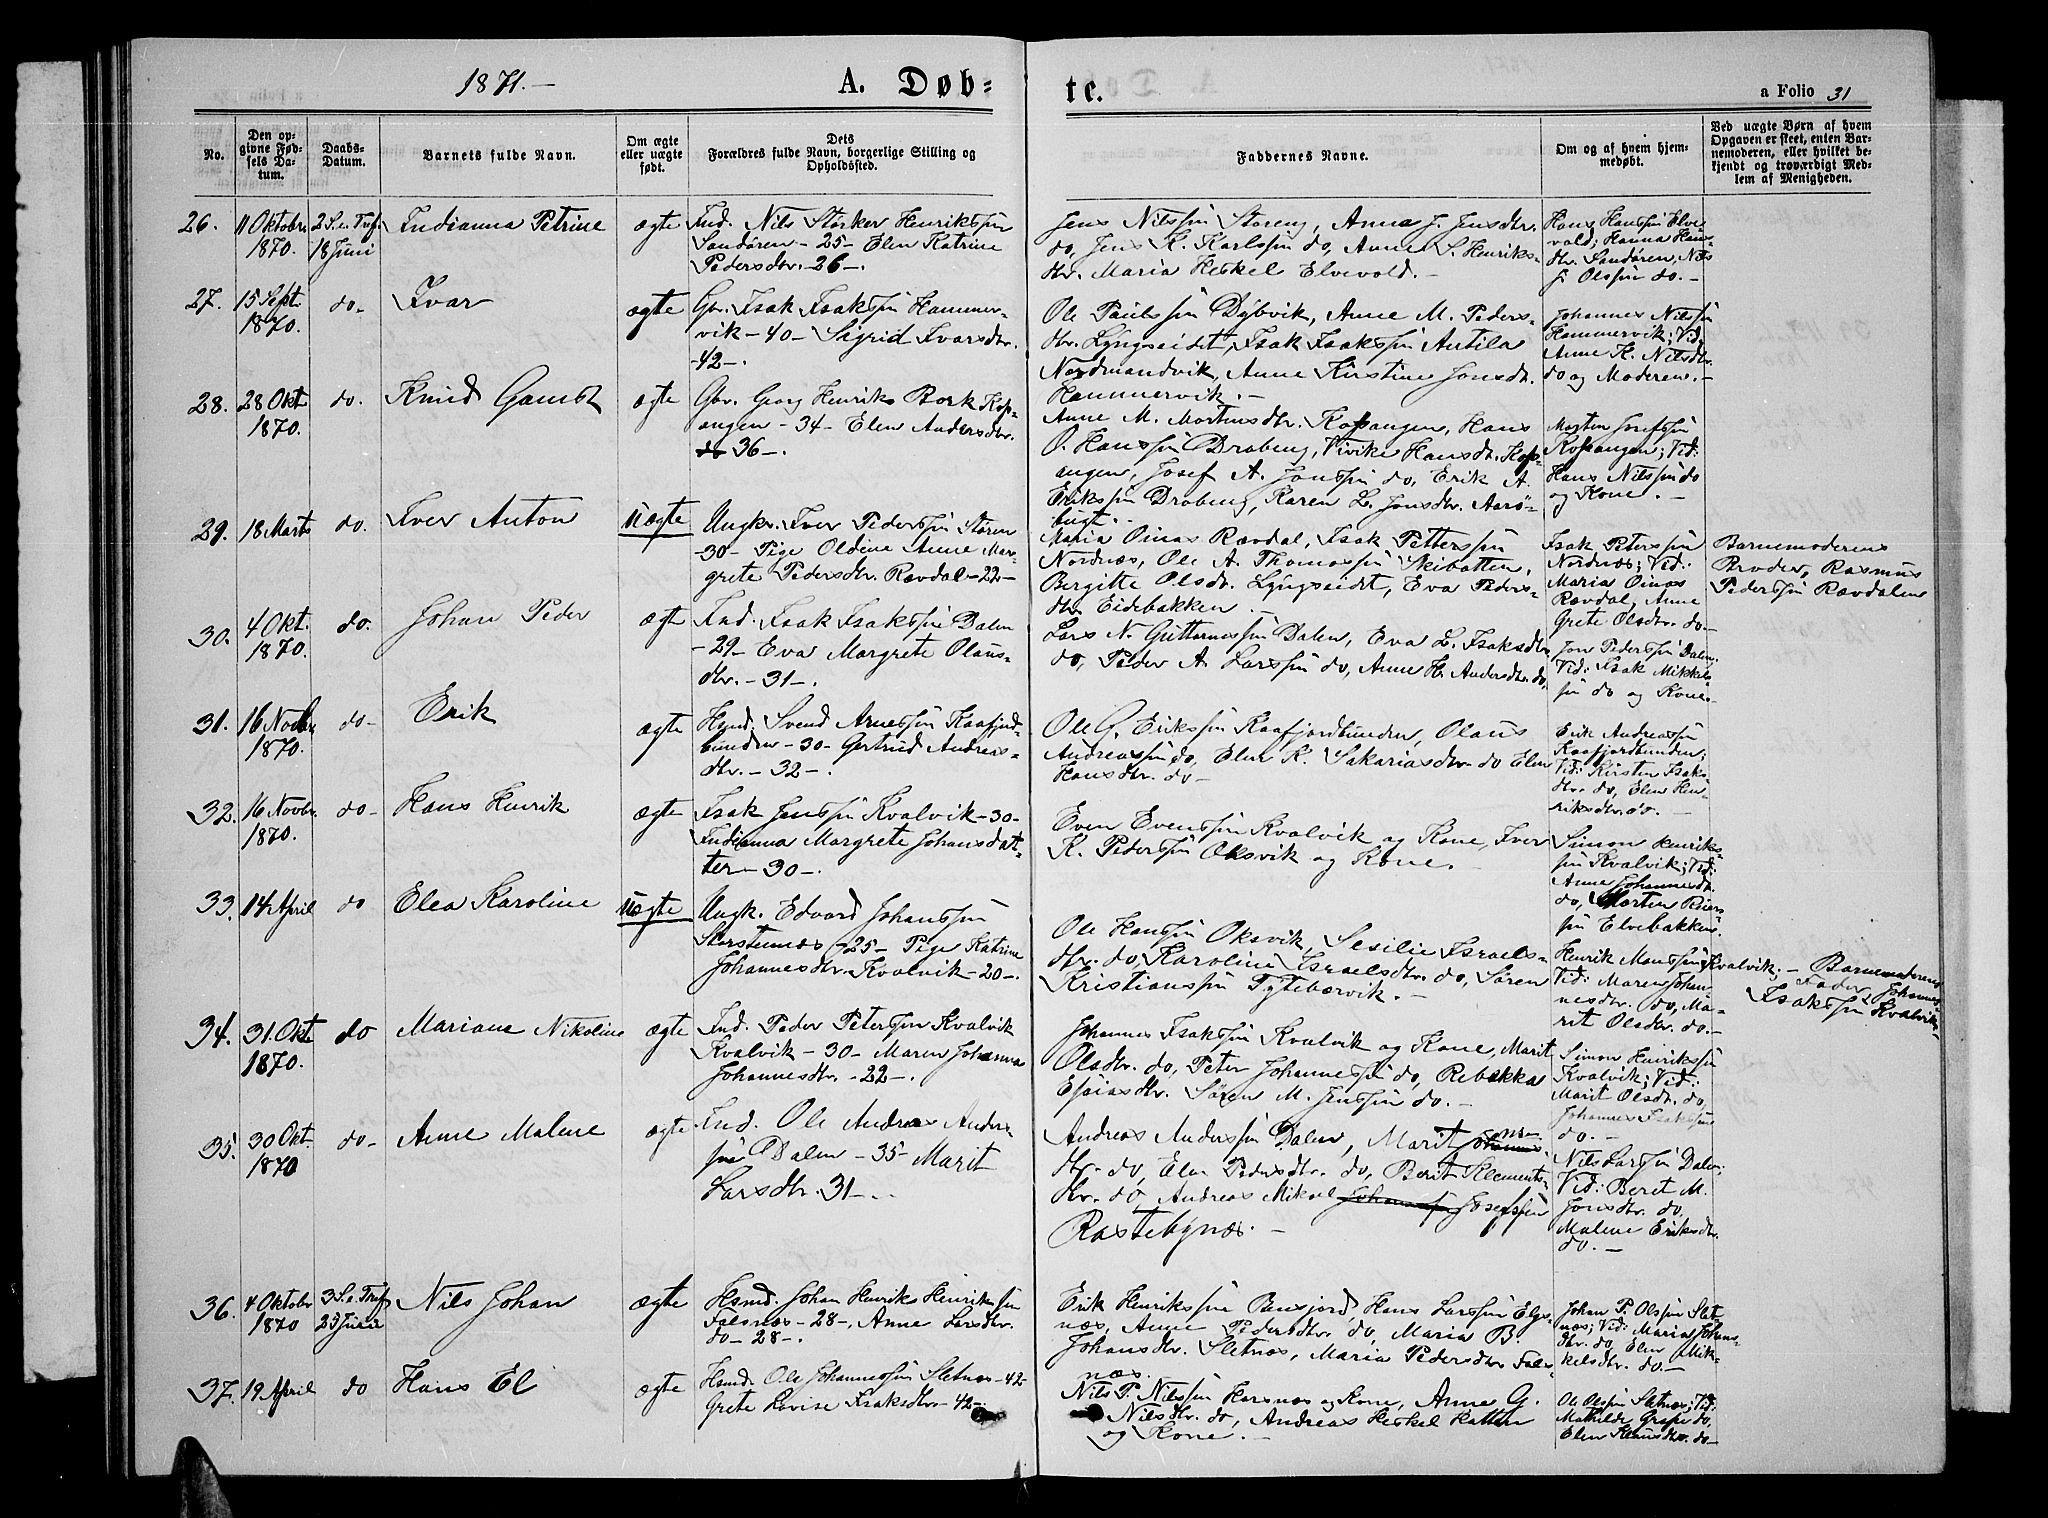 1871.—
A. Døb=
te.
a Folio 31
No.
Den op=
givne Fød=
sels Da=
tum.
Daabs=
Datum.
Barnets fulde Navn.
Om ægte
eller uægte
født.
Dets
Forældres fulde Navn, borgerlige Stilling og
Opholdssted.
Faddernes Navne.
Om og af hvem hjem=
medøbt.
Ved uægte Børn af hvem
Opgaven er skeet, enten Bar=
nemoderen, eller hvilket be=
kjendt og troværdigt Med=
lem af Menigheden.
26.
11 Oktobr
1870.
2 S. e. Tref.
18 Juni
Indianna Petrine
ægte
Ind. Nils Størker Henrikssøn
Sandøren - 25 - Elen Katrine
Pedersdtr. - 26 -.
Jens Nilssøn Storeng, Anna J. Jensdtr.
do, Jens K. Karlssøn do, Anne S. Henriks-
dtr. Maria Heskel Elvevold. -
Hans Hanssøn Elve
vold; Hanna Hans-
dtr. Sandøren, Nils
J. Olssøn do. -
27.
15 Sept.
1870.
do -
Ivar
ægte
Gbr. Isak Isakssøn Hammer-
vik - 40 - Sigrid Ivarsdtr.
- 42 -.
Ole Paulssøn Dybvik, Anne M. Peders-
dtr. Lyngseidet, Isak Isakssøn Antila
Nordmandvik, Anne Kirstine Jonsdt.
Hammervik. -
Johannes Nilssøn
Hammervik; Vid.
Anne K. Nilsdtr.
do og Moderen. -
28.
28 Okt
1870.
do.
Knud Gamst
ægte
Gbr. Georg Henriks Bork Kop-
angen - 34 - Elen Andersdtr.
do 36 -.
Anne M. Mortensdtr. Kopangen, Hans
O. Hanssøn Drabeng, Vivike Hansdt. Kop-
angen, Josef A. Jonssøn do, Erik A.
Erikssøn Drabeng, Karen L. Jonsdtr. Aarø-
bugt. -
Morten Josefssøn
Kopangen; Vid:
Hans Nilssøn do
og Kone. -
29.
18 Marts
do.
Iver Anton
uægte
Ungkr. Iver Pederssøn Støren
- 30 - Pige Oldine Anne Mar-
grete Pedersdtr. Rævdal - 22 -
Maria Oinas Rævdal, Isak Petterssøn
Nordnæs, Ole A. Thomassøn Skibotten,
Bergitte Olsdtr. Lyngseidt, Eva Peders-
dtr Eidebakken. -
Isak Peterssøn
Nordnæs; Vid:
Maria Oinas
Rævdal, Anne
Grete Olsdtr. do -
Barnemoderens
Broder, Rasmus
Pederssøn Rævdalen
30.
4 Okt.
1870.
do.
Johan Peder
ægte
Ind. Isak Isakssøn Dalen
- 29 - Eva Margrete Olaus-
dtr. - 31 -.
Lars N. Guttormssøn Dalen, Eva L. Isaksdtr
do, Peder A. Larssøn do, Anne H. Andersdtr. do,
Jon Pederssøn Dalen.
Vid: Isak Mikkels
søn do og Kone -
31.
16 Novbr
1870.
do -
Erik
ægte
Hsmd. Svend Arnessøn Kaafjord
bunden - 30 - Gertrud Andreas-
dtr. - 32 -.
Ole G. Erikssøn Kaafjordbunden, Olaus
Andreassøn do, Elen K. Sakariasdtr. do Elen
Hansdtr. do -
Erik Andreassøn
Kaafjordbunden;
Vid: Kirsten Isaks-
dtr. do, Elen Hen-
riksdtr. do. -
32.
16 Novbr.
1870.
do -
Hans Henrik
ægte
Isak Jenssøn Kvalvik - 30 -
Indianna Margrete Johansdat-
ter - 30 -.
Even Evenssøn Kvalvik og Kone, Iver
K. Pederssøn Oksvik og Kone. -
Simon Henriks-
søn Kvalvik; Vid:
Anne Johannesdt.
do, Morten Reiers-
søn Elvebakken.
33.
14 April
do
Elea Karoline
uægte
Ungk. Edvard Johanssøn
Storstennæs - 25 - Pige Katrine
Johannesdtr. Kvalvik - 20 -.
Ole Hanssøn Oksvik, Sesilie Israels-
dtr. do, Karoline Israelsdtr. do, Søren
Kristianssøn Tytebærvik. -
Henrik Monssøn Kvalvik; -
Vid: Maren Johan
nesdtr. do, Ma-
rit Olsdtr. do. -
Barnemoderens
Fader, Johannes
Isakssøn Kvalvik -
34.
31. Okt.
1870.
do
Mariane Nikoline
ægte
Ind. Peder Peterssøn Kvalvik
Kvalvik - 30 - Maren Johanna
Johannesdtr. - 22 -.
Johannes Isakssøn Kvalvik og Kone, Marit
Olsdtr. do, Peter Johannessøn do, Rebekka
Esaiasdtr. Søren M. Jenssøn do. -
Simon Henrikssøn
Kvalvik; Vid:
Marit Olsdtr. do,
Johannes Isakssøn
do. -
35.
30 Okt.
1870
do -
Anne Malene
ægte
Ind. Ole Andreas Anders
søn Dalen - 35 - Marit
Larsdtr. 31 -.
Andreas Anderssøn Dalen, Marit
dtr. do, Elen Pedersdtr. do, Berit Klements-
dtr. do, Andreas Mikal Johanssøn Josefssøn
Rastebynæs. -
Nils Larssøn Dalen;
Vid: Berit M.
Jonsdtr. do,
Malene Eriksdtr.
do. -
36.
4 Oktobr
1870
3 S. e. Tref
25 Juni
Nils Johan
ægte
Hsmd. Johan Henriks Henrikssøn
Falsnæs - 28 -, Anne Larsdtr.
do - 28 -.
Erik Henrikssøn Balsfjord, Hans Larssøn Elgs-
næs, Anne Pedersdtr. do, Maria B.
Johansdtr. Sletnæs, Maria Pedersdtr Fals-
næs.
Johan P. Olssøn Slet-
næs; Vid: Maria Johans-
dtr. do, Elen Mik-
kelsdtr. do. -
37.
19 April
do
Hans El
ægte
Hsmd. Ole Johannessøn Sletnæs - 42 -
Grete Lovise Isaksdtr. - 42 -.
Nils P. Nilssøn Horsnæs og Kone, Anne G.
Nilsdtr. do, Andreas Heskel Ratten
og Kone. -
Ole Olssøn Sletnæs; Vid:
Mathilde Grape do,
Elen Klausdtr. do -